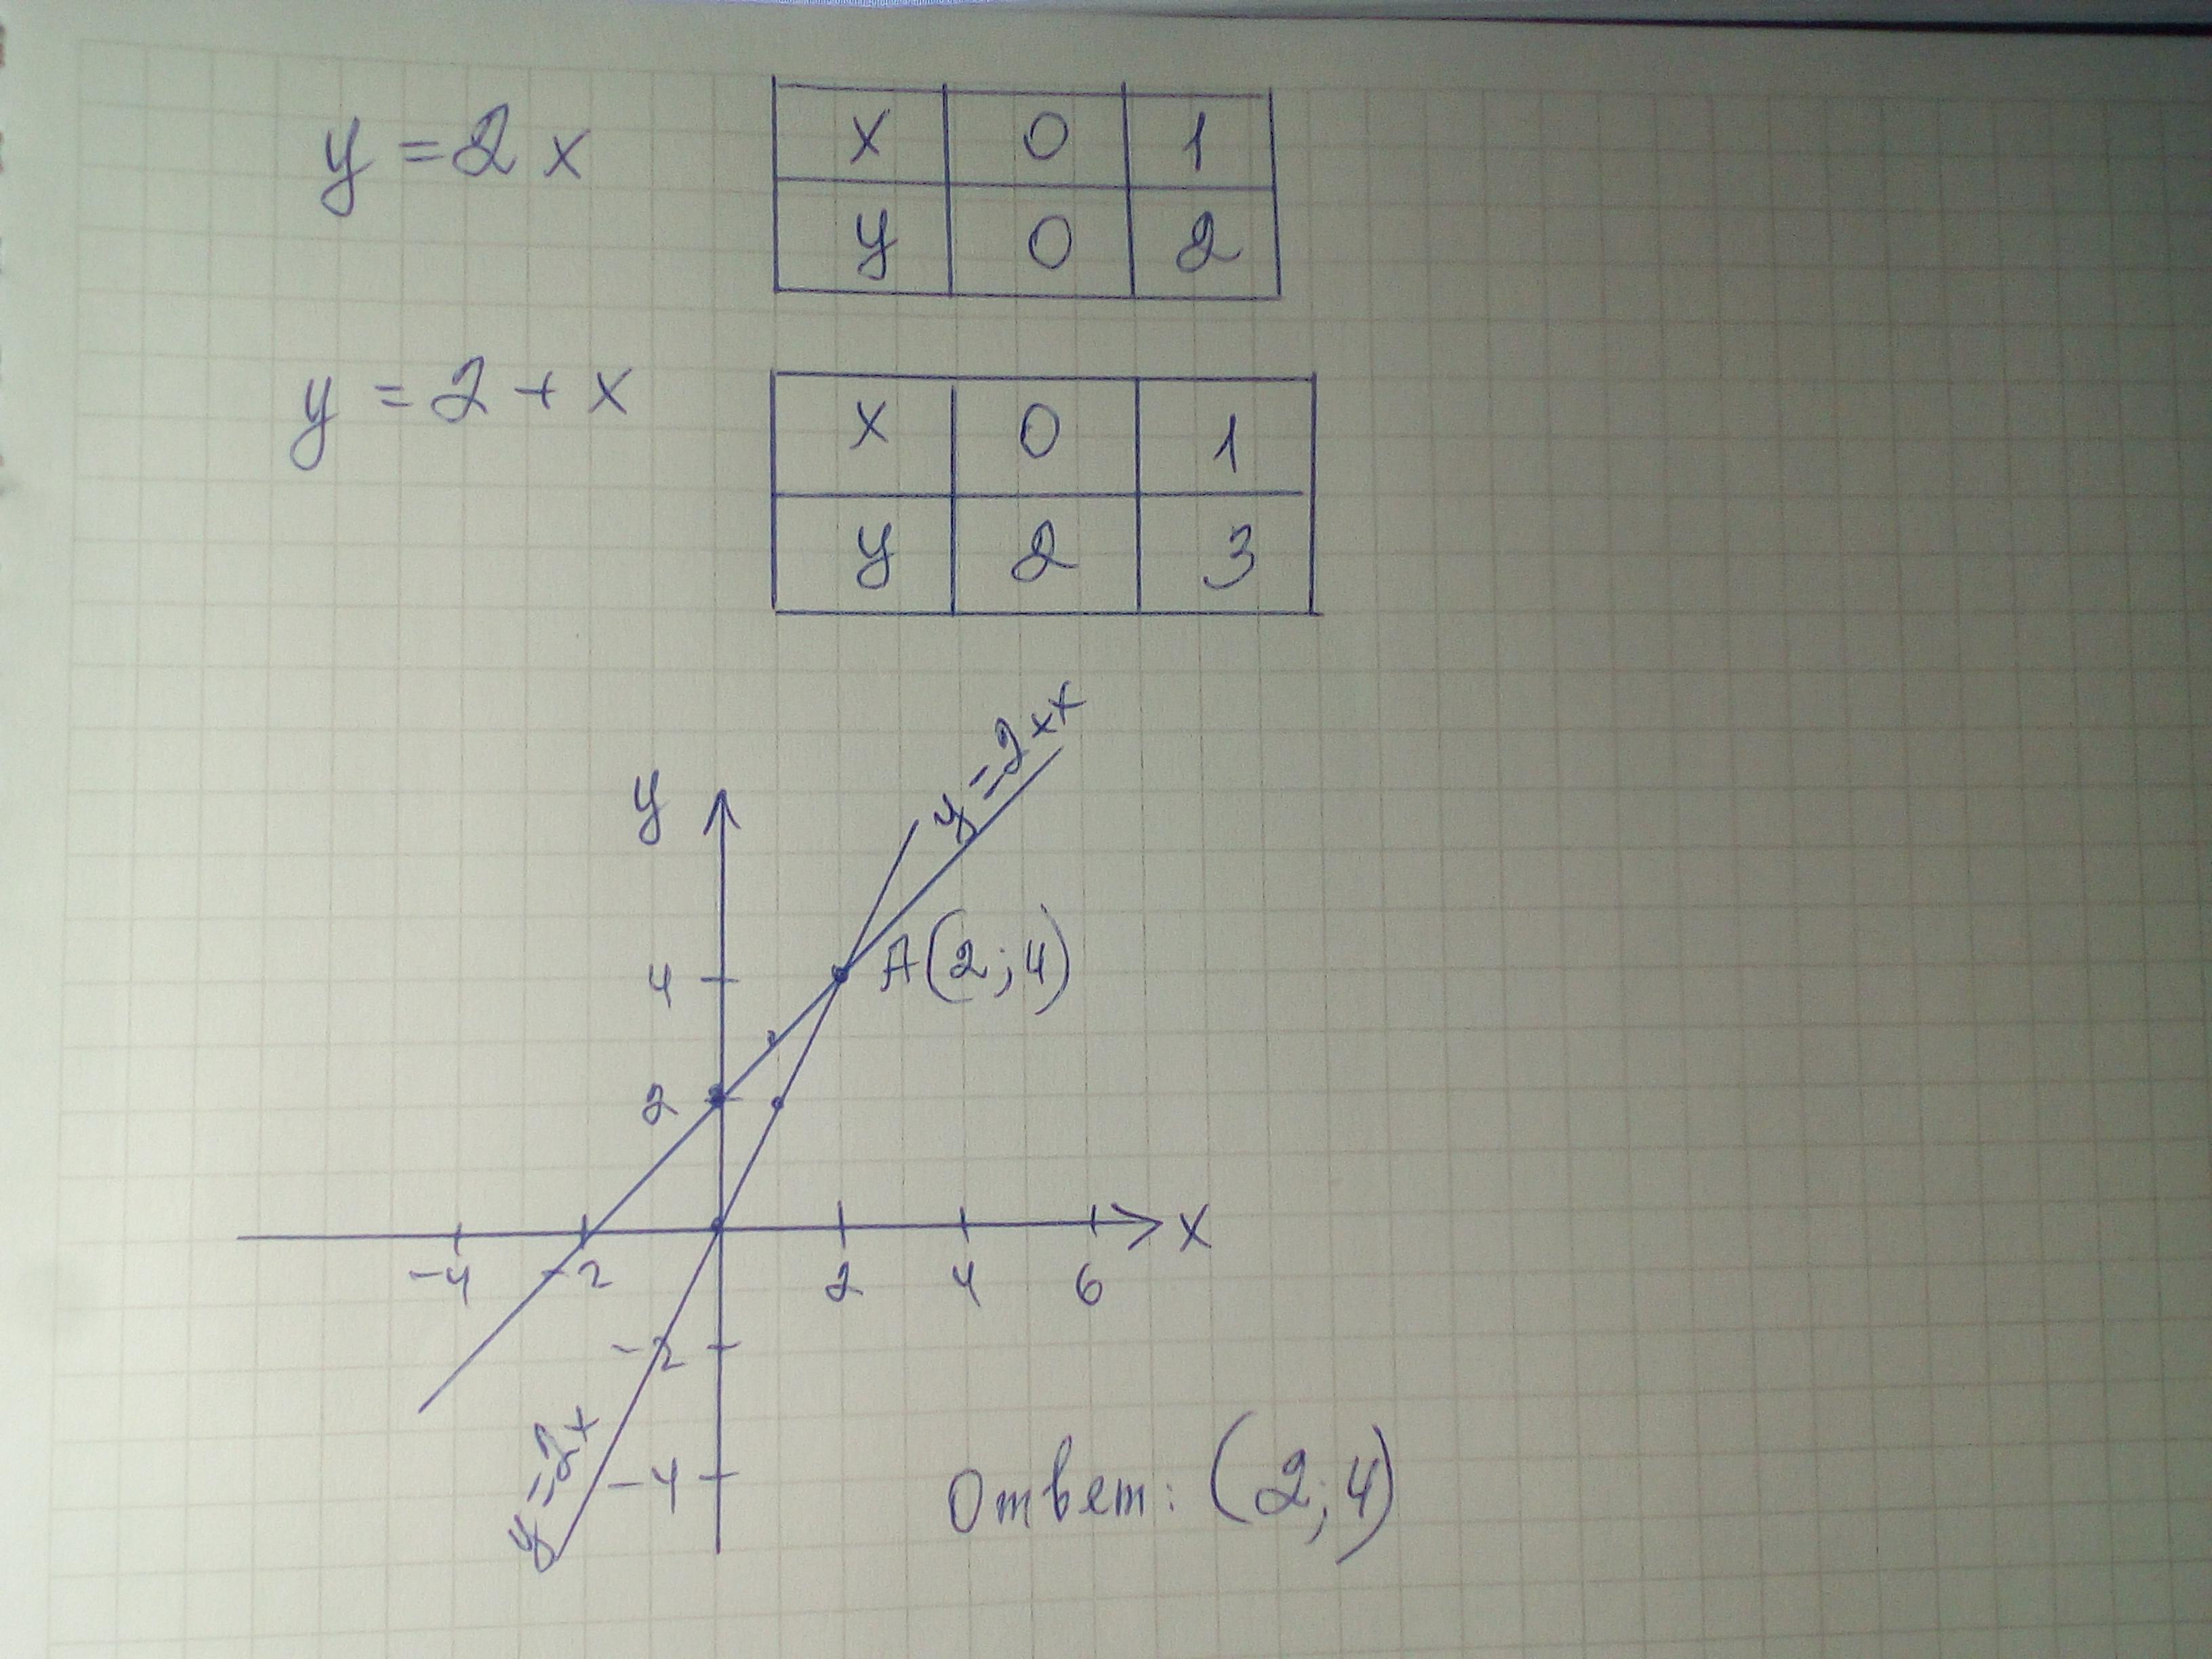 y = 2x
x 0 1
y 0 2
y = 2 + x
x 0 1
y 2 3
y
y = 2 + x
4
A(2;4)
2
-4 -2 2 4 6 x
-2
y = 2x
-4
Ответ: (2;4)